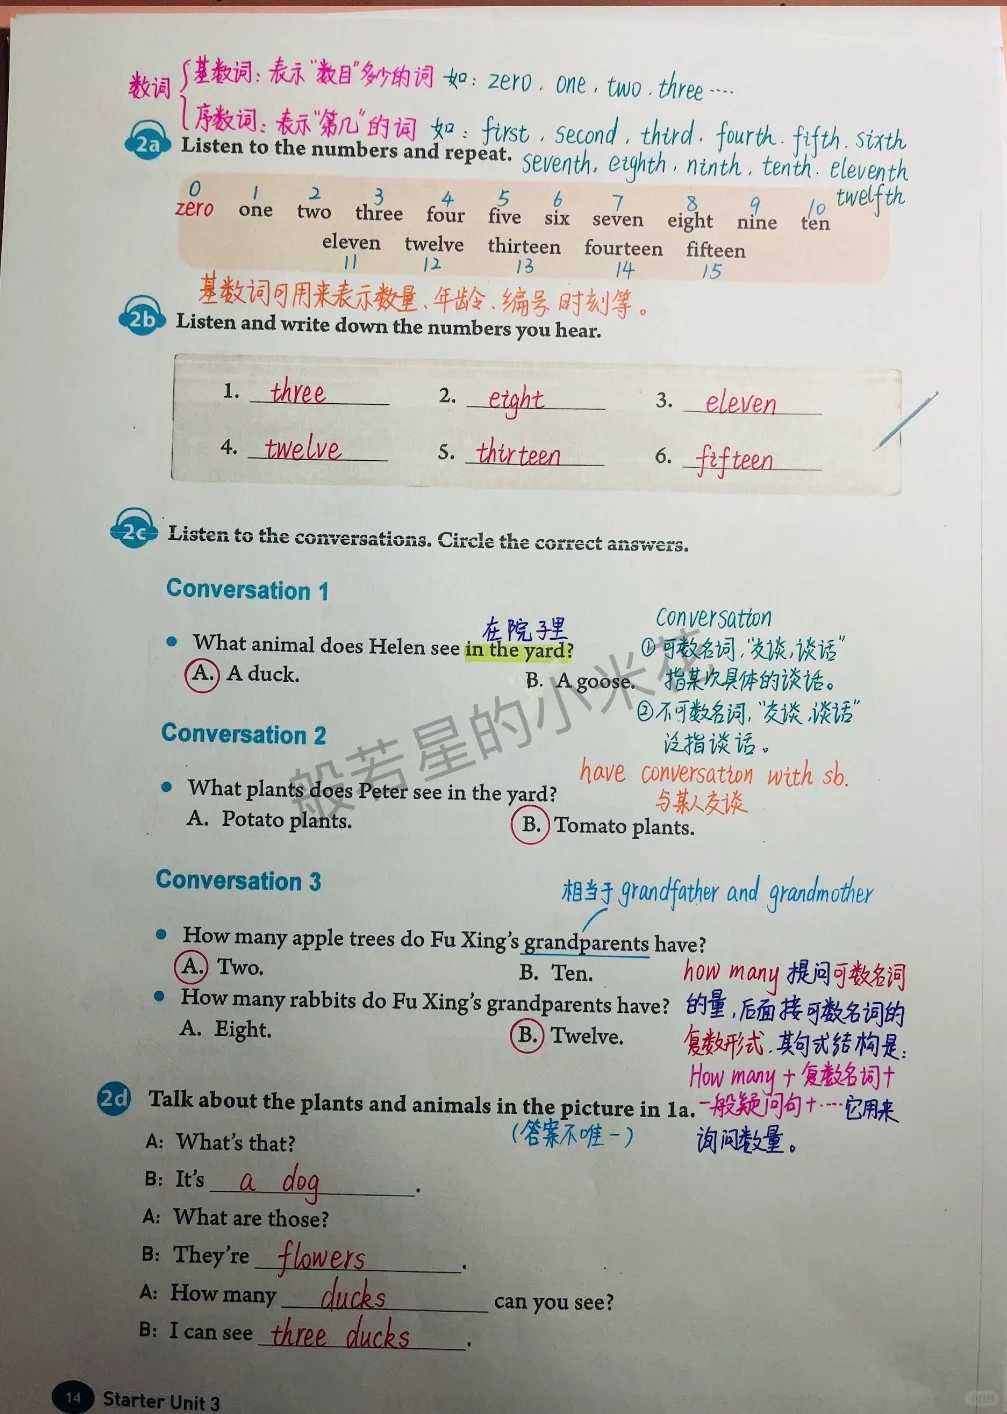 数词
基数词：表示“数目”多少的词 如：zero、one，two、three····
序数词：表示“第几”的词 如：first、second，third、fourth、fifth、sixth
2a Listen to the numbers and repeat.
seventh，eighth、ninth、tenth、eleventh
twelfth
0 1 2 3 4 5 6 7 8 9 10
zero one two three four five six seven eight nine ten
eleven twelve thirteen fourteen fifteen
11 12 13 14 15
基数词可用来表示数量、年龄、编号、时刻等。
2b Listen and write down the numbers you hear.
1. three 2. eight 3. eleven
4. twelve 5. thirteen 6. fifteen
2c Listen to the conversations. Circle the correct answers.
Conversation 1
在院子里
What animal does Helen see in the yard?
A. A duck. B. A goose.
Conversation
①可数名词，“交谈，谈话”
指某次具体的谈话。
②不可数名词，“交谈，谈话”
泛指谈话。
have conversation with sb.
与某人交谈
Conversation 2
What plants does Peter see in the yard?
A. Potato plants. B. Tomato plants.
般若星的小米花
Conversation 3
相当于 grandfather and grandmother
How many apple trees do Fu Xing's grandparents have?
A. Two. B. Ten.
How many rabbits do Fu Xing's grandparents have?
A. Eight. B. Twelve.
how many 提问可数名词
的量，后面接可数名词的
复数形式．其句式结构是：
How many + 复数名词+
一般疑问句+····它用来
询问数量。
2d Talk about the plants and animals in the picture in 1a.
（答案不唯一）
A: What's that?
B: It's a dog.
A: What are those?
B: They're flowers.
A: How many ducks can you see?
B: I can see three ducks.
14 Starter Unit 3